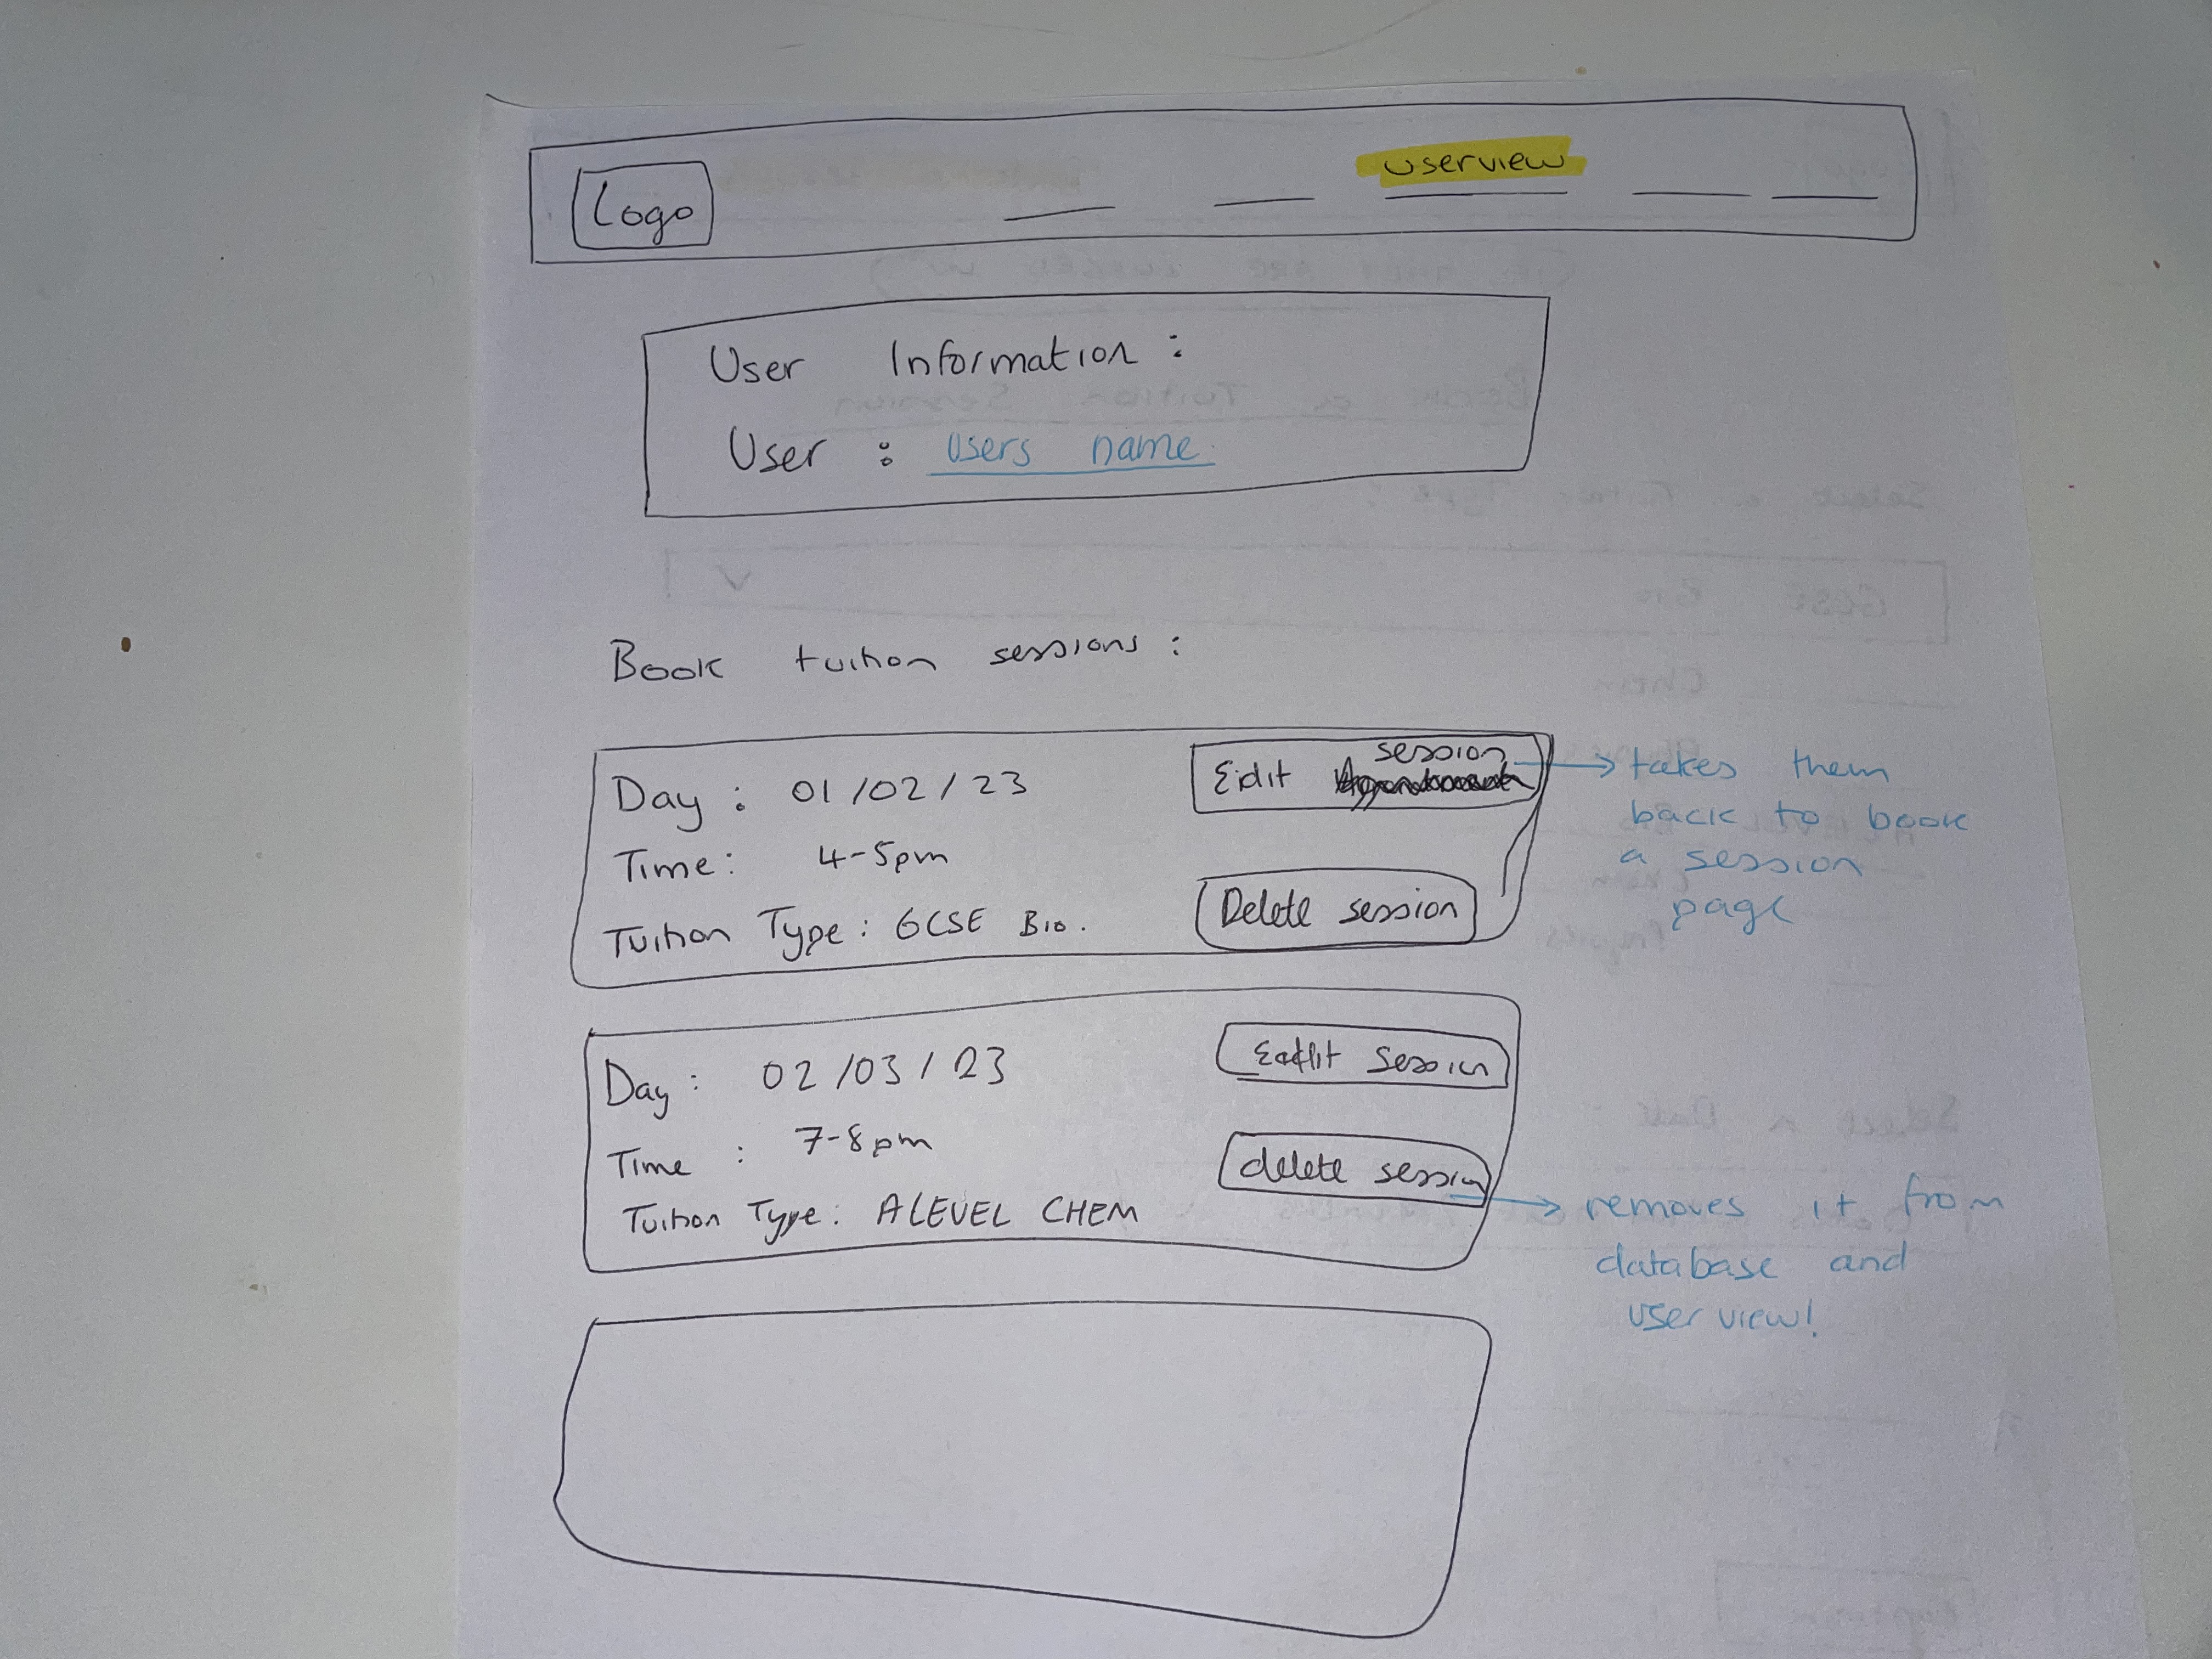 Logo
userview
User Information :
User : users name
Book tuition sessions :
Day : 01/02/23
Time : 4-5pm
Tuition Type : GCSE Bio.
Eidit session
Delete session
takes them
back to book
a session
page
Day : 02/03/23
Time : 7-8pm
Tuition Type : ALEVEL CHEM
session
delete session
removes it from
database and
user view!